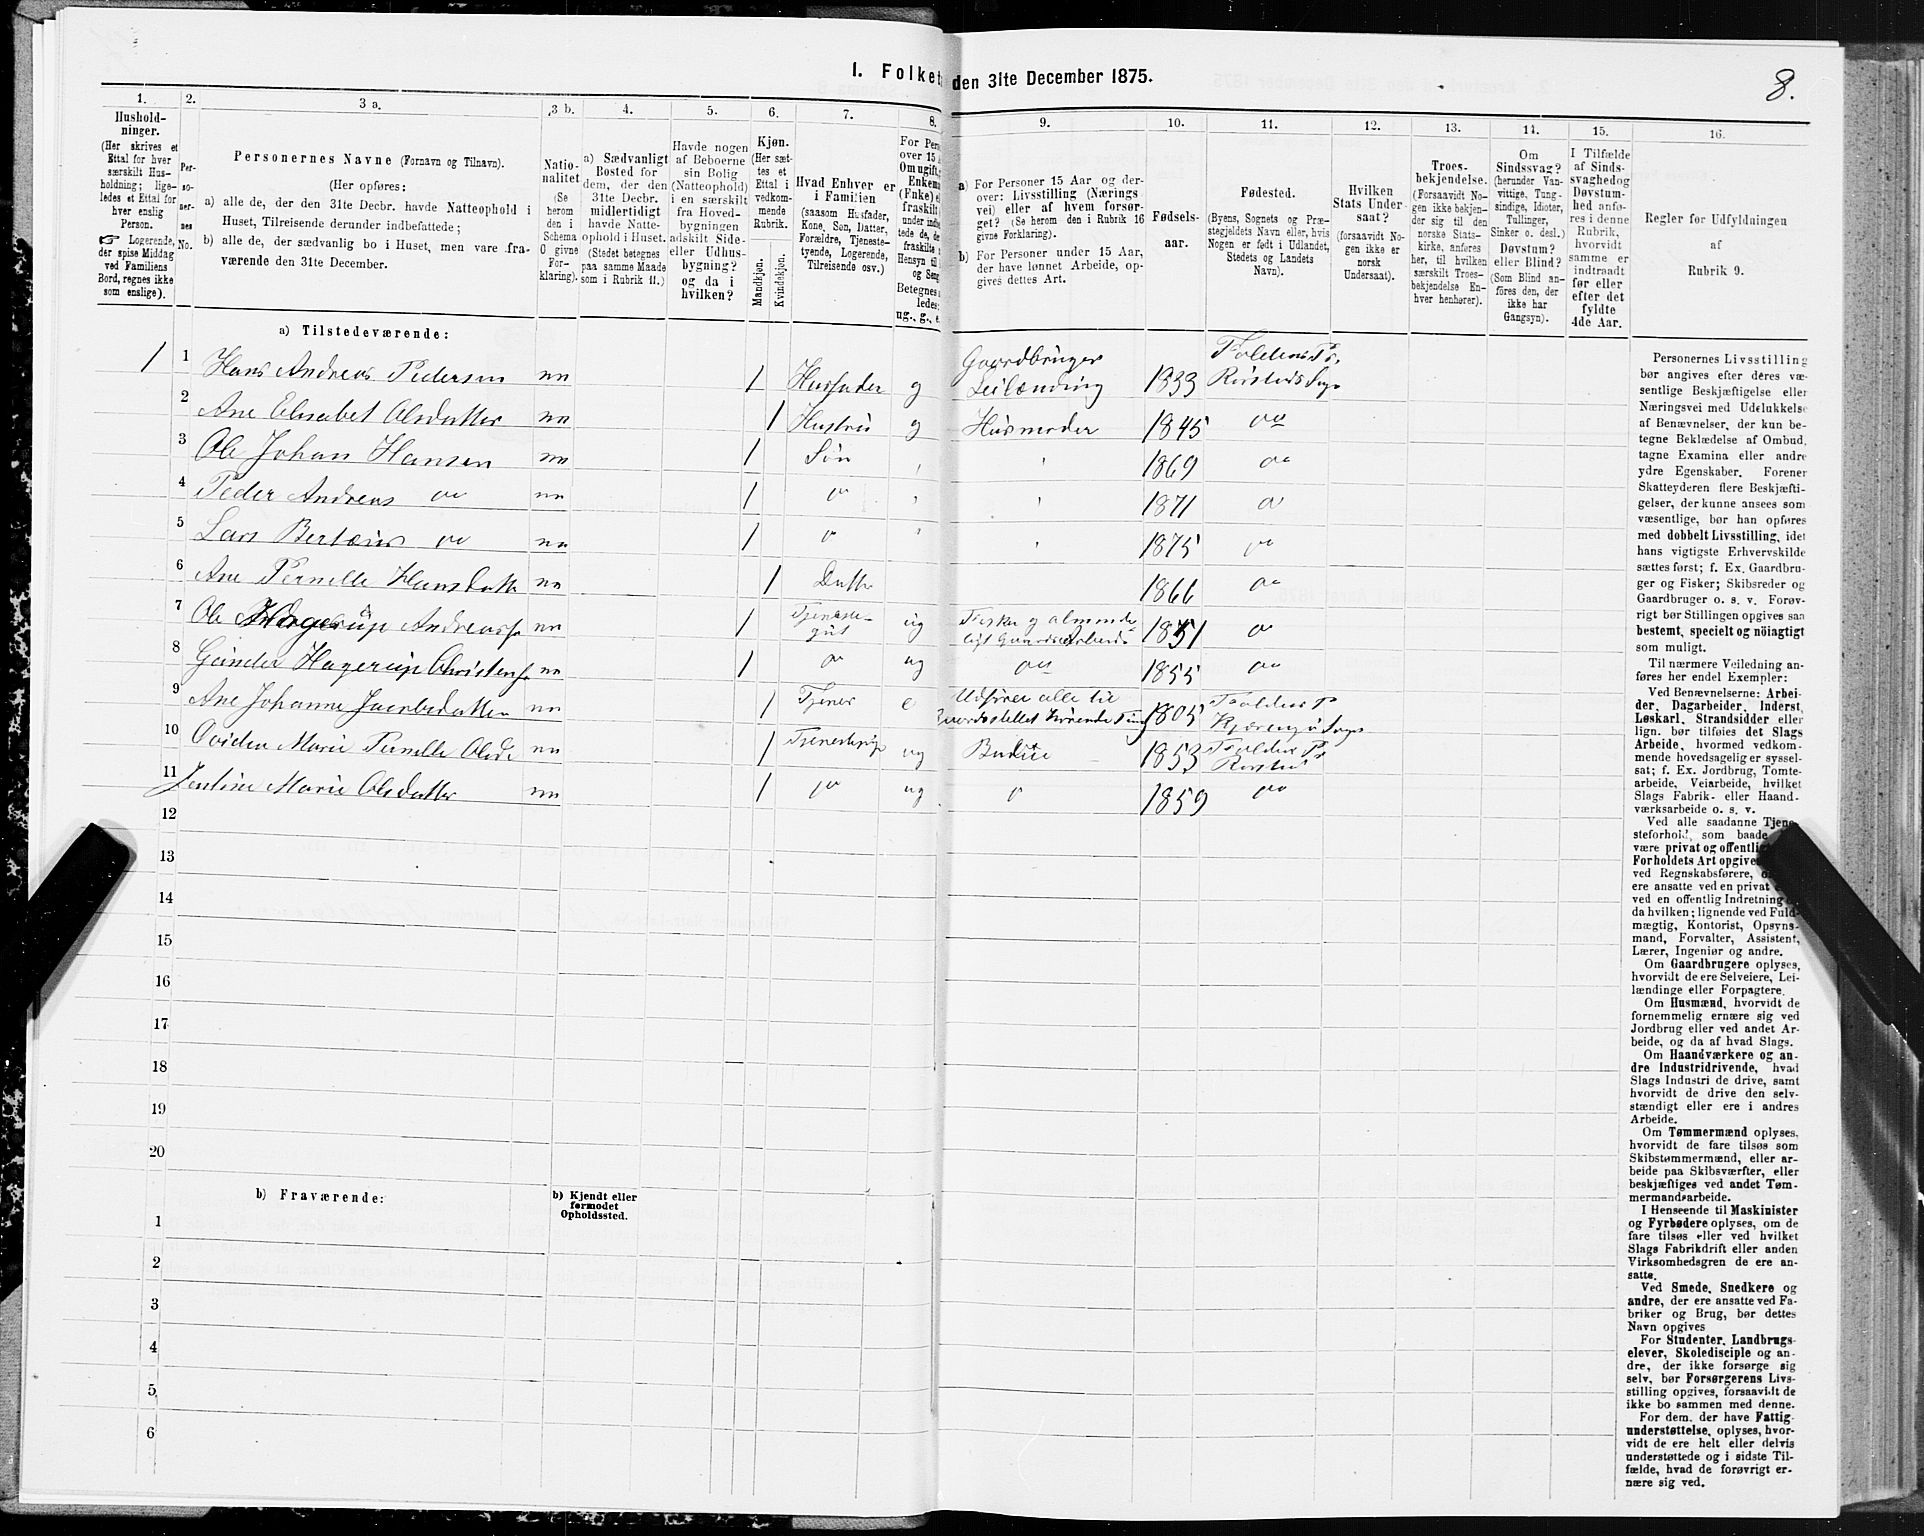 I. Folket den 31te December 1875.
8.
1.
Hushold-
ninger.
(Her skrives et
Ettal for hver
særskilt Hus-
holdning; lige-
ledes et Ettal for
hver enslig
Person.
☞ Logerende,
der spise Middag
ved Familiens
Bord, regnes ikke
som enslige).
2.
Per-
so-
ner-
nes
No.
3 a.
Personernes Navne (Fornavn og Tilnavn).
(Her opføres:
a) alle de, der den 31te Decbr. havde Natteophold i
Huset, Tilreisende derunder indbefattede;
b) alle de, der sædvanlig bo i Huset, men vare fra-
værende den 31te December.
3 b.
Natio-
nalitet
(Se
herom
den i
Schema
O givne
For-
klaring).
4.
a) Sædvanligt
Bosted for
dem, der den
31te Decbr.
midlertidigt
havde Natte-
ophold i Huset.
(Stedet betegnes
paa samme Maade
som i Rubrik 11.)
5.
Havde nogen
af Beboerne
sin Bolig
(Natteophold)
i en særskilt
fra Hoved-
bygningen
adskilt Side-
eller Udhus-
bygning?
og da i
hvilken?
6.
Kjøn.
(Her sæt-
tes et
Ettal i
vedkom-
mende
Rubrik.
Mandkjøn.
Kvindekjøn.
7.
Hvad Enhver er
i Familien
(saasom Husfader,
Kone, Søn, Datter,
Forældre, Tjeneste-
tyende, Logerende,
Tilreisende osv.)
8.
For Pers
over 15 A
Om ugift,
Enkema
(Fnke) e
fraskilt
9.
a) For Personer 15 Aar og der-
over: Livsstilling (Nærings-
vei) eller af hvem forsør-
get? (Se herom den i Rubrik 16
givne Forklaring).
b) For Personer under 15 Aar,
der have lønnet Arbeide, op-
gives dettes Art.
10.
Fødsels-
aar.
11.
Fødested.
(Byens, Sognets og Præ-
stegjeldets Navn eller, hvis
Nogen er født i Udlandet,
Stedets og Landets
Navn).
12.
Hvilken
Stats Under-
saat?
(forsaavidt No-
gen ikke er
norsk
Undersaat).
13.
Troes-
bekjendelse.
(Forsaavidt No-
gen ikke bekjen-
der sig til den
norske Stats-
kirke, anføres
her, til hvilken
særskilt Troes-
bekjendelse En-
hver henhører).
14.
Om
Sindssvag?
(herunder Van-
vittige, Tung-
sindige, Idioter,
Tullinger,
Sinker o. desl.)
Døvstum?
eller Blind?
(Som Blind an-
føres den, der
ikke har
Gangsyn).
15.
I Tilfælde
af Sinds-
svaghed og
Døvstum-
hed anfø-
res i denne
Rubrik,
hvorvidt
samme er
indtraadt
før eller
efter det
fyldte
4de Aar.
16.
Regler for Udfyldningen
af
Rubrik 9.
a) Tilstedeværende:
1 1 Hans Andreas Pedersen nn 1 Husfader g Gaardbruger Leilænding 1833 Foldens Pr. Rørstads Sogn
2 Ane Elisabet Olsdatter nn 1 Hustru g Husmoder 1845 oo
3 Ole Johan Hansen nn 1 Søn 1869 oo
4 Peder Andreas oo nn 1 oo 1871 oo
5 Lars Bertæus oo nn 1 oo 1875 oo
6 Ane Pernille Hansdatter nn 1 Datter 1866 oo
7 Ole Hagerup Andreass. nn 1 Tjeneste-gut ug Fisker og almindeligt Gaardsarbeide 1851 oo
8 Gunder Hagerup Christens. nn 1 oo ug oo 1855 oo
9 Ane Johanne Jacobsdatter nn 1 Tjener e Udfører alle til Gaardsstellet hørende Ting 1805 Foldens Pr. Kjerringø Sogn
10 Ovidia Marie Pernille Olsd. nn 1 Tjenestepige ug Budeie 1853 Foldens Pr. Rørstad
11 Jentine Marie Olsdatter nn 1 oo ug o 1859 oo
12
13
14
15
16
17
18
19
20
b) Fraværende:
b) Kjendt eller
formodet
Opholdssted.
1
2
3
4
5
6
Personernes Livsstilling
bør angives efter deres væ-
sentlige Beskjæftigelse eller
Næringsvei med Udelukkelse
af Benævnelser, der kun be-
tegne Beklædelse af Ombud,
tagne Examina eller andre
ydre Egenskaber. Forener
Skatteyderen flere Beskjæfti-
gelser, der kunne ansees som
væsentlige, bør han opføres
med dobbelt Livsstilling, idet
hans vigtigste Erhvervskilde
sættes først; f. Ex. Gaardbru-
ger og Fisker; Skibsreder og
Gaardbruger o. s. v. Forøv-
rigt bør Stillingen opgives saa
bestemt, specielt og nöiagtigt
som muligt.
Til nærmere Veiledning an-
føres her endel Exempler:
Ved Benævnelserne: Arbei-
der, Dagarbeider, Inderst,
Løskarl, Strandsidder eller
lign. bør tilføies det Slags
Arbeide, hvormed vedkom-
mende hovedsagelig er syssel-
sat; f. Ex. Jordbrug, Tomte-
arbeide, Veiarbeide, hvilket
Slags Fabrik- eller Haand-
værksarbeide o. s. v.
Ved alle saadanne Tjene-
steforhold, som baade
være privat og offentlig
Forholdets Art opgive
ved Regnskabsførere,
ere ansatte ved en privat
ved en offentlig Indretning
da hvilken; lignende ved Fuld-
mægtig, Kontorist, Opsyns-
mand, Forvalter, Assistent,
Lærer, Ingeniør og andre.
Om Gaardbrugere oplyses,
hvorvidt de ere Selveiere, Lei-
lændinge eller Forpagtere.
Om Husmænd, hvorvidt de
fornemmelig ernære sig ved
Jordbrug eller ved andet Ar-
beide, og da af hvad Slags.
Om Haandværkere og an-
dre Industridrivende, hvad
Slags Industri de drive, samt
hvorvidt de drive den selv-
stændigt eller ere i andres
Arbeide.
Om Tømmermænd oplyses,
hvorvidt de fare tilsøs som
Skibstømmermænd, eller ar-
beide paa Skibsværfter, eller
beskjæftiges ved andet Tøm-
mermandsarbeide.
I Henseende til Maskinister
og Fyrbødere oplyses, om de
fare tilsøs eller ved hvilket
Slags Fabrikdrift eller anden
Virksomhedsgren de ere an-
satte.
Ved Smede, Snedkere og
andre, der ere ansatte ved Fa-
briker og Brug, bør dettes
Navn opgives
For Studenter, Landbrugs-
elever, Skoledisciple og an-
dre, der ikke forsørge sig
selv, bør Forsørgerens Livs-
stilling opgives, forsaavidt de
ikke bo sammen med denne.
For dem, der have Fattig-
understøttelse, oplyses, hvor-
vidt de ere helt eller delvis
understøttede og i sidste Til-
fælde, hvad de forøvrigt er-
nære sig ved.